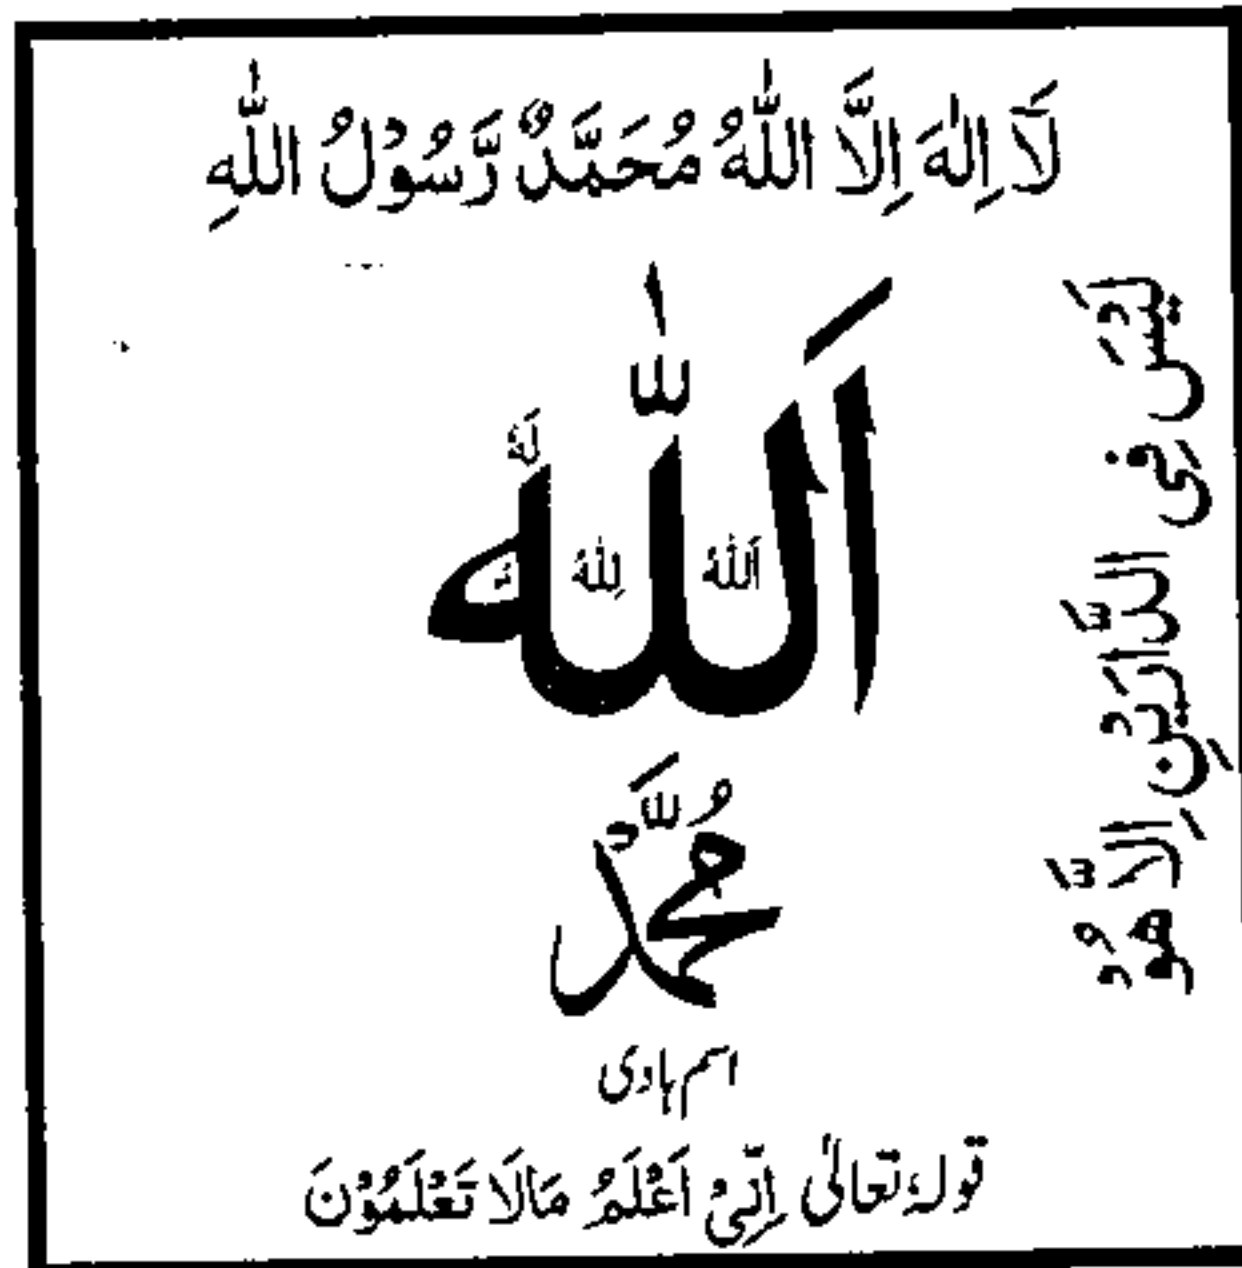 لَآ اِلٰهَ اِلَّا اللّٰهُ مُحَمَّدٌ رَّسُوْلُ اللّٰهِ
لَيْسَ فِي الدَّارَيْنِ اِلَّا هُوَ
اَللّٰهُ
لَهُ
اَللّٰهُ لِلّٰهِ هُ
مُحَمَّدٌ
اسم ہادی
قولہٗ تعالیٰ اِنِّیْ اَعْلَمُ مَالَا تَعْلَمُوْنَ